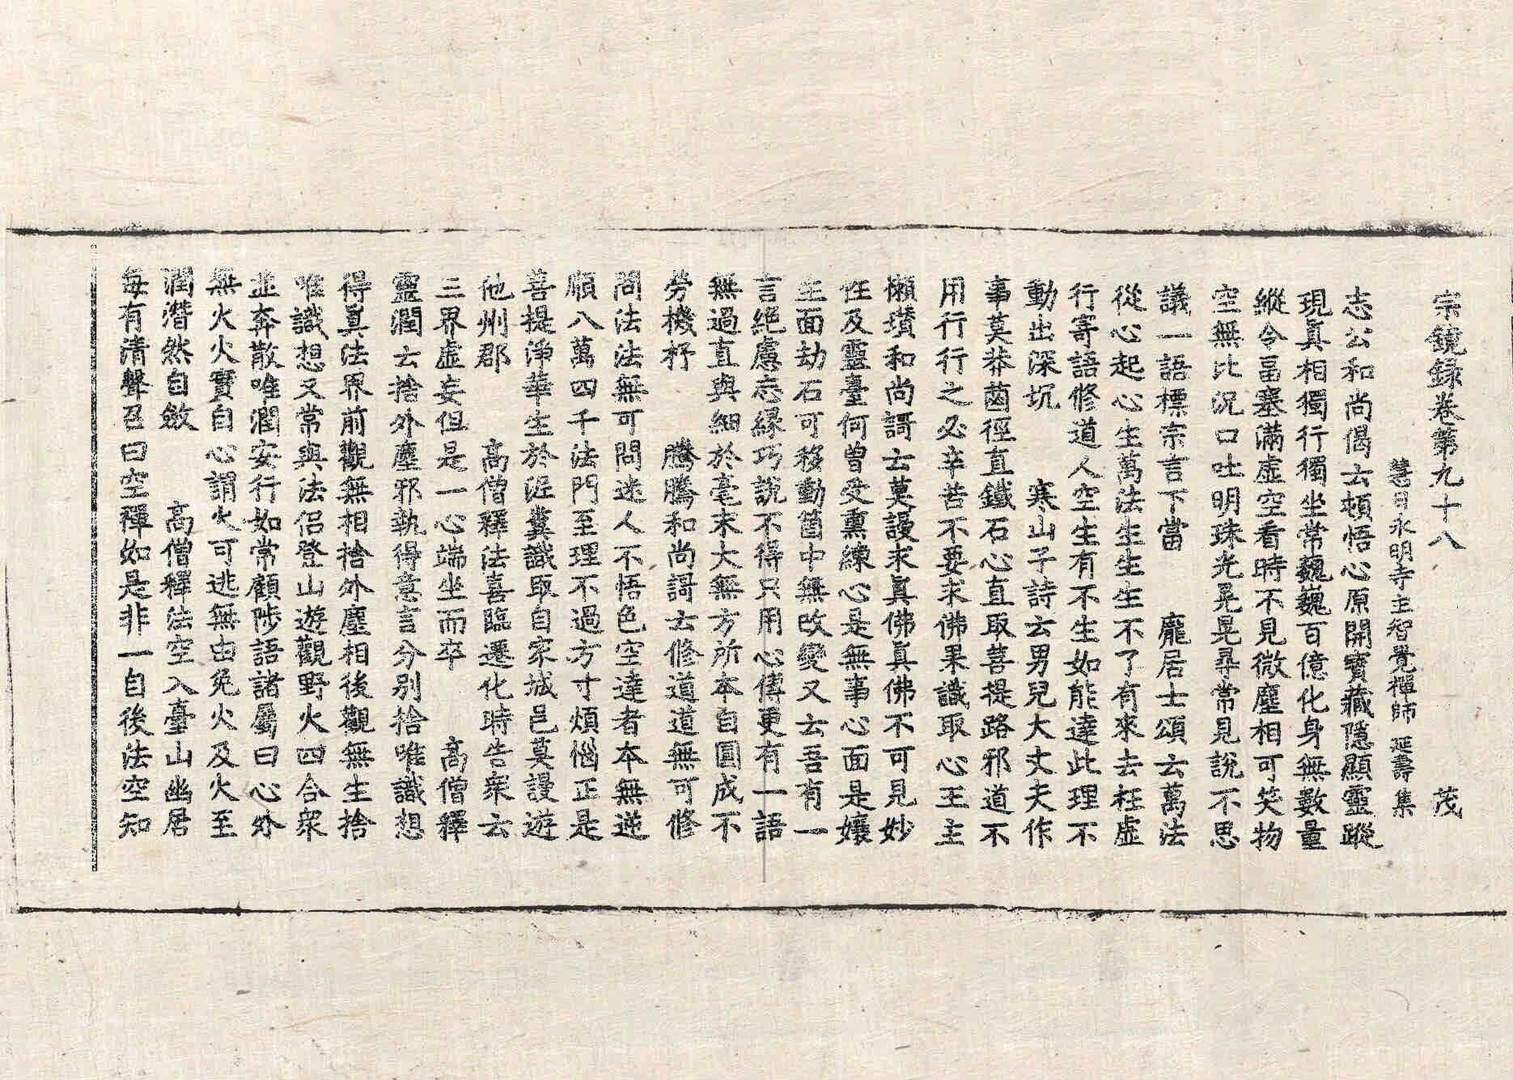 宗鏡録卷第九十八　茂
慧日永明寺主智覺禪師延壽集
志公和尚偈云頓悟心原開寶藏隱顯靈蹤
現真相獨行獨坐常巍巍百億化身無數量
縱令畐塞滿虛空看時不見微塵相可笑物
空無比況口吐明珠光晃晃尋常見說不思
議一語標宗言下當　龐居士頌云萬法
從心起心生萬法生生生不了有來去枉虛
行寄語修道人空生有不生如能達此理不
動出深坑　寒山子詩云男兒大丈夫作
事莫莽鹵徑直鐵石心直取菩提路邪道不
用行行之必辛苦不要求佛果識取心王主
懶瓚和尚謌云莫謾求真佛真佛不可見妙
性及靈臺何曾受熏練心是無事心面是孃
生面劫石可移動箇中無改變又云吾有一
言絕慮忘緣巧說不得只用心傳更有一語
無過直與細於毫末大無方所本自圓成不
勞機杼　騰騰和尚謌云修道道無可修
問法法無可問迷人不悟色空達者本無逆
順八萬四千法門至理不過方寸煩惱正是
菩提淨華生於泥糞識取自家城邑莫謾遊
他州郡　高僧釋法喜臨遷化時告衆云
三界虛妄但是一心端坐而卒　高僧釋
靈潤云捨外塵邪執得意言分別捨唯識想
得真法界前觀無相捨外塵相後觀無生捨
唯識想又常與法侶登山遊觀野火四合衆
並奔散唯潤安行如常顧陟語諸屬曰心外
無火火實自心謂火可逃無由免火及火至
潤潛然自斂　高僧釋法空入臺山幽居
每有清聲召曰空禪如是非一自後法空知